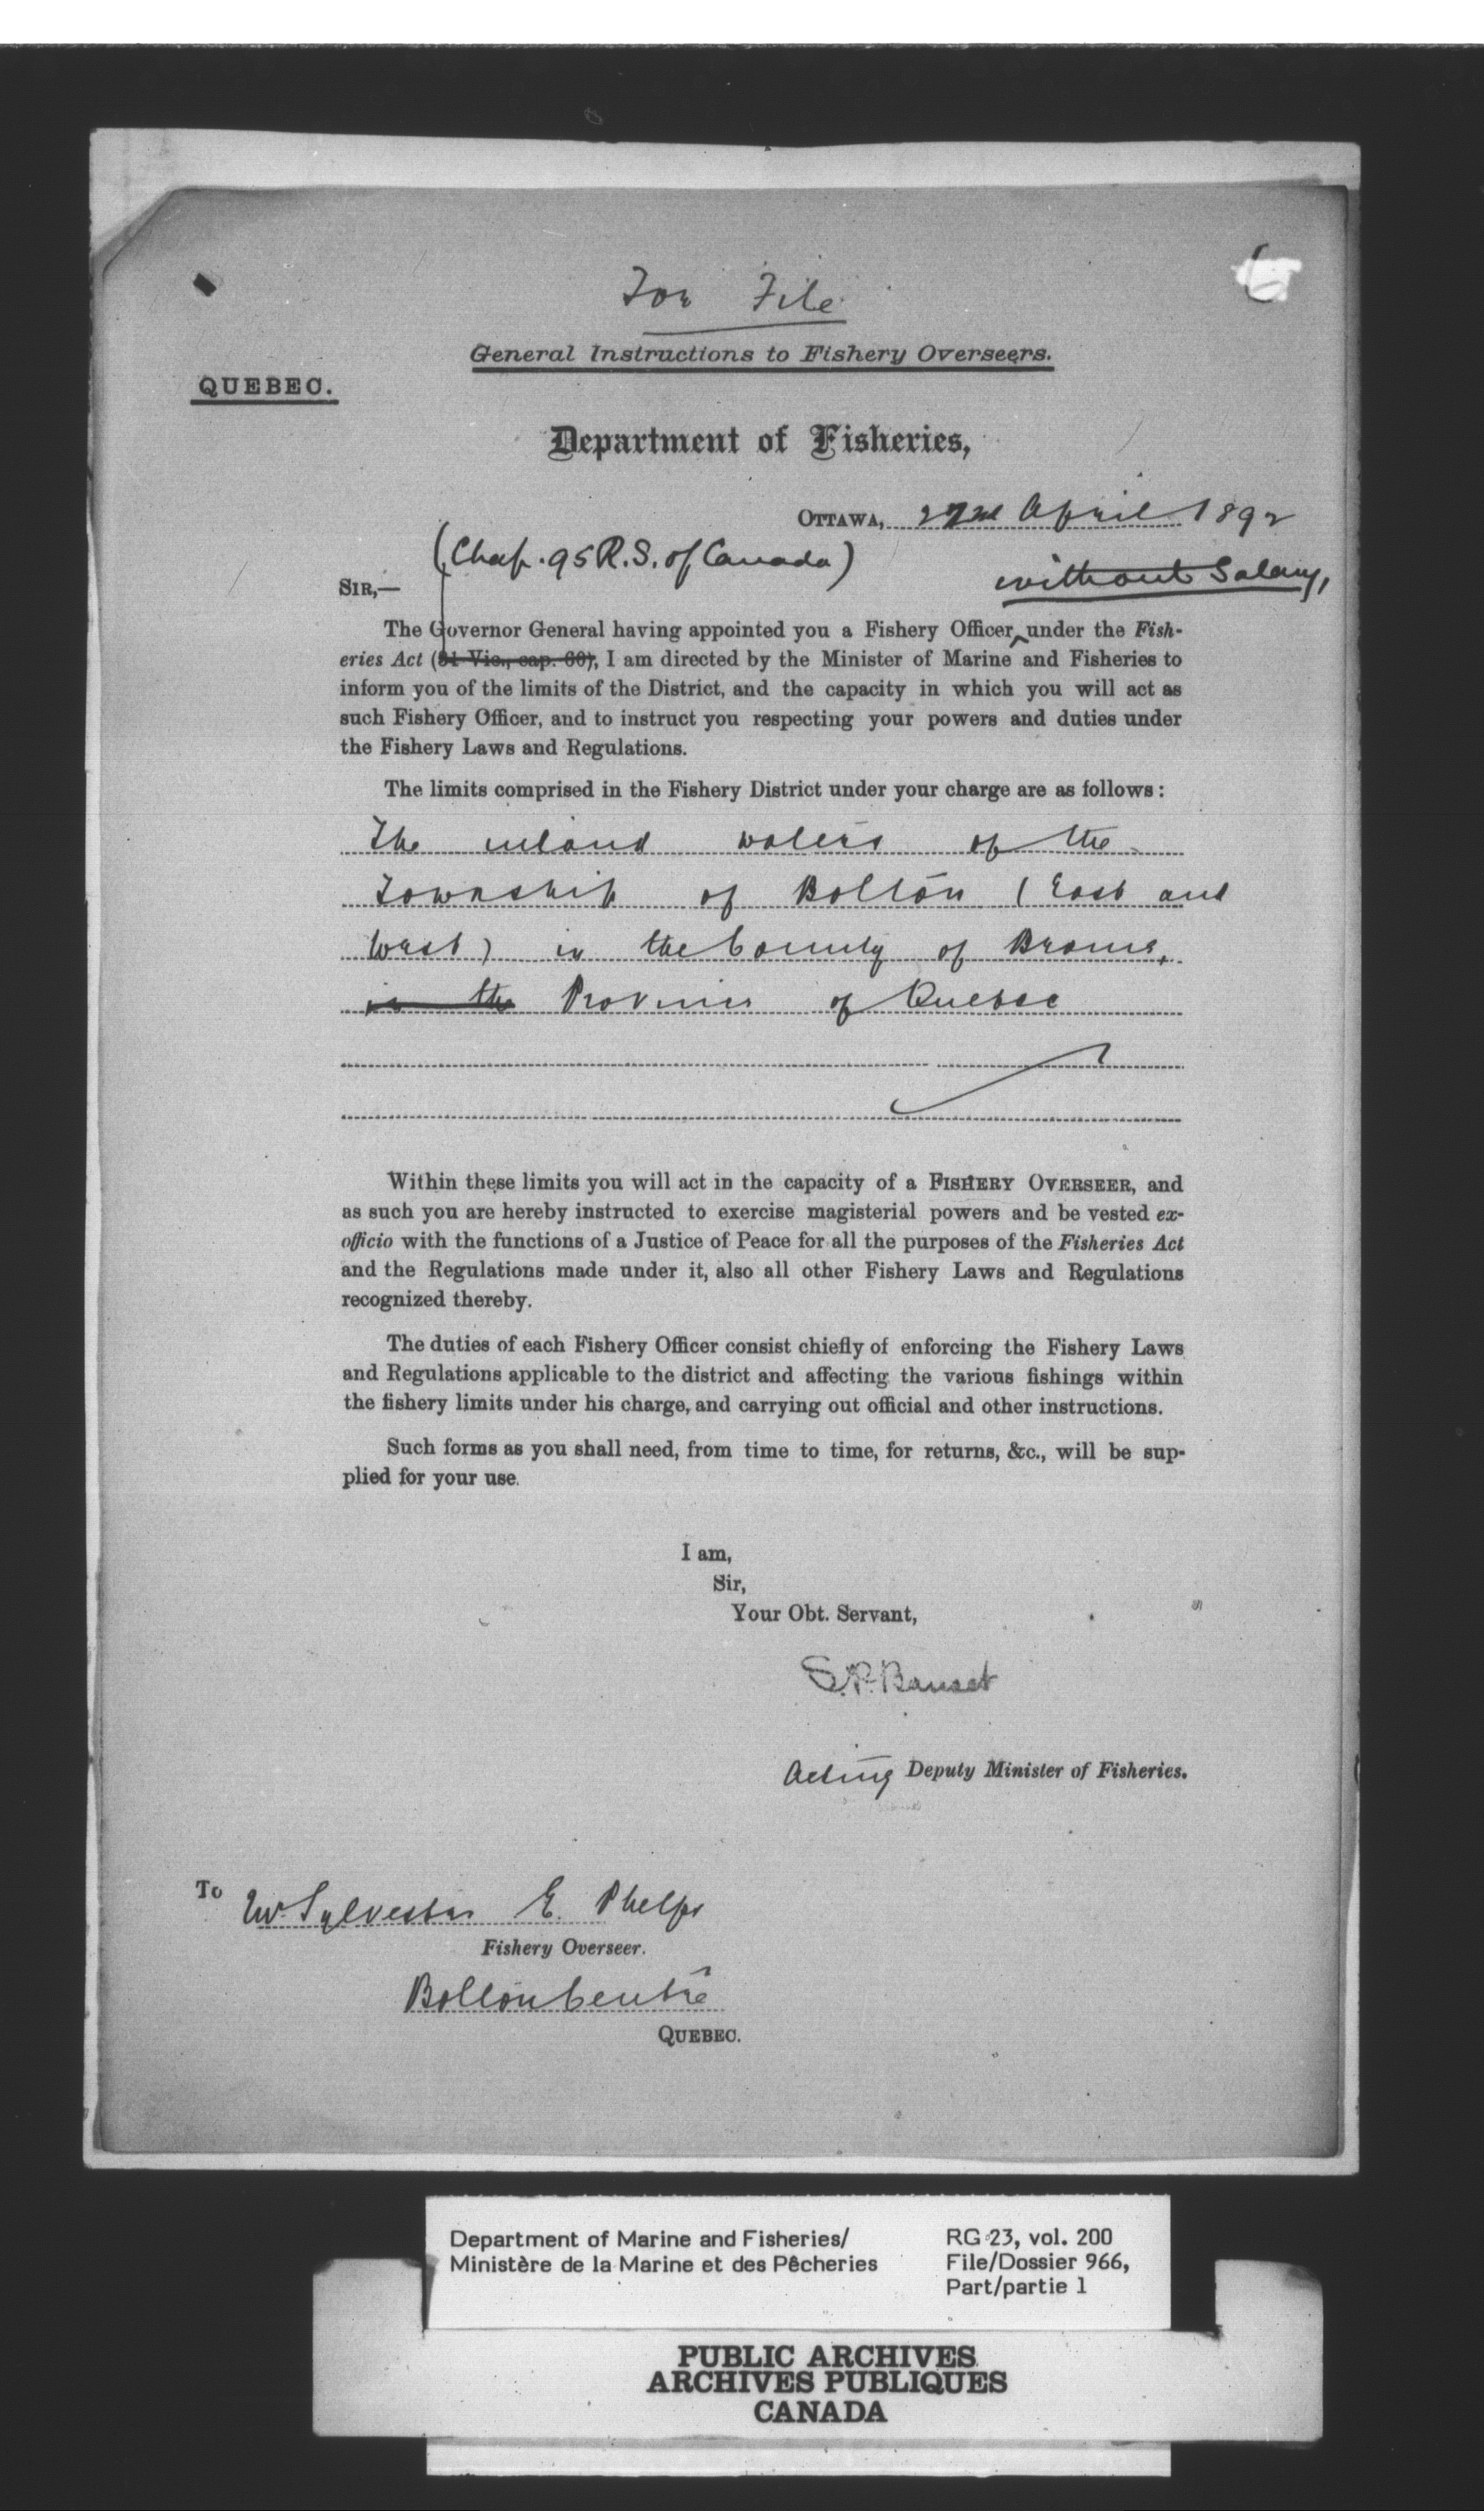 For File
General Instructions to Fishery Overseers.
QUEBEC.
Department of Fisheries,
OTTAWA, 22nd April 1892
(Chap. 95 R.S. of Canada)
without Salary,
SIR,—
The Governor General having appointed you a Fishery Officer ‸ under the Fish-
eries Act (31 Vic., cap. 60), I am directed by the Minister of Marine and Fisheries to
inform you of the limits of the District, and the capacity in which you will act as
such Fishery Officer, and to instruct you respecting your powers and duties under
the Fishery Laws and Regulations.
The limits comprised in the Fishery District under your charge are as follows:
The inland waters of the
Township of Bolton (East and
West) in the County of Brome,
in the Province of Quebec
Within these limits you will act in the capacity of a FISHERY OVERSEER, and
as such you are hereby instructed to exercise magisterial powers and be vested ex-
officio with the functions of a Justice of Peace for all the purposes of the Fisheries Act
and the Regulations made under it, also all other Fishery Laws and Regulations
recognized thereby.
The duties of each Fishery Officer consist chiefly of enforcing the Fishery Laws
and Regulations applicable to the district and affecting the various fishings within
the fishery limits under his charge, and carrying out official and other instructions.
Such forms as you shall need, from time to time, for returns, &c., will be sup-
plied for your use.
I am,
Sir,
Your Obt. Servant,
S.P. Bauset
Acting Deputy Minister of Fisheries.
To Mr Sylvester E. Phelps
Fishery Overseer.
Bolton Centre
QUEBEC.
Department of Marine and Fisheries/
Ministère de la Marine et des Pêcheries
RG 23, vol. 200
File/Dossier 966,
Part/partie 1
PUBLIC ARCHIVES
ARCHIVES PUBLIQUES
CANADA